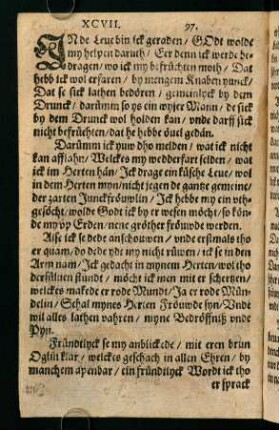 XCVII. 97.
INde Leue bin ick geraden / GOdt wolde
my helpen daruth / Eer denn ick werde be-
dragen / wo ick my befrüchten moth / Dat
hebb ick wol erfaren / by mengem Knaben yunck /
Dat se sick lathen bedören / gemeinlyck by dem
Drunck / darümm so ys ein wyser Mann / de sick
by dem Drunck wol holden kan / vnde darff sick
nicht befrüchten / dat he hebbe öuel gedan.
Darümm ick yuw dho melden / wat ick nicht
kan afflahn / Welckes my wedderfart selden / wat
ick im Herten hän / Ick drage ein küsche Leue / wol
in dem Herten myn / nicht jegen de gantze gemeine /
der zarten Junckfröuwlin / Ick hebbe my ein vth-
gesöcht / wolde Godt ick by er wesen möcht / so kön-
de my vp Erden / nene gröther fröuwde werden.
Alse ick se dede anschouwen / vnde erstmals tho
er quam / do dede ydt my nicht rüwen / ick se in den
Arm nam / Ick gedacht in mynem Herten / wol tho
dersüluen stundt / möcht ick men mit er schertzen /
welckes makede er rode Mundt / Ja er rode Mün-
delin / Schal mynes Herten Fröuwde syn / Vnde
wil alles lathen vahren / myne Bedröffniß vnde
Pyn.
Fründtlyck se my anblickede / mit eren brun
Oglin klar / welckes geschach in allen Ehren / by
manchem apenbar / ein fründtlyck Wordt ick tho
er sprack